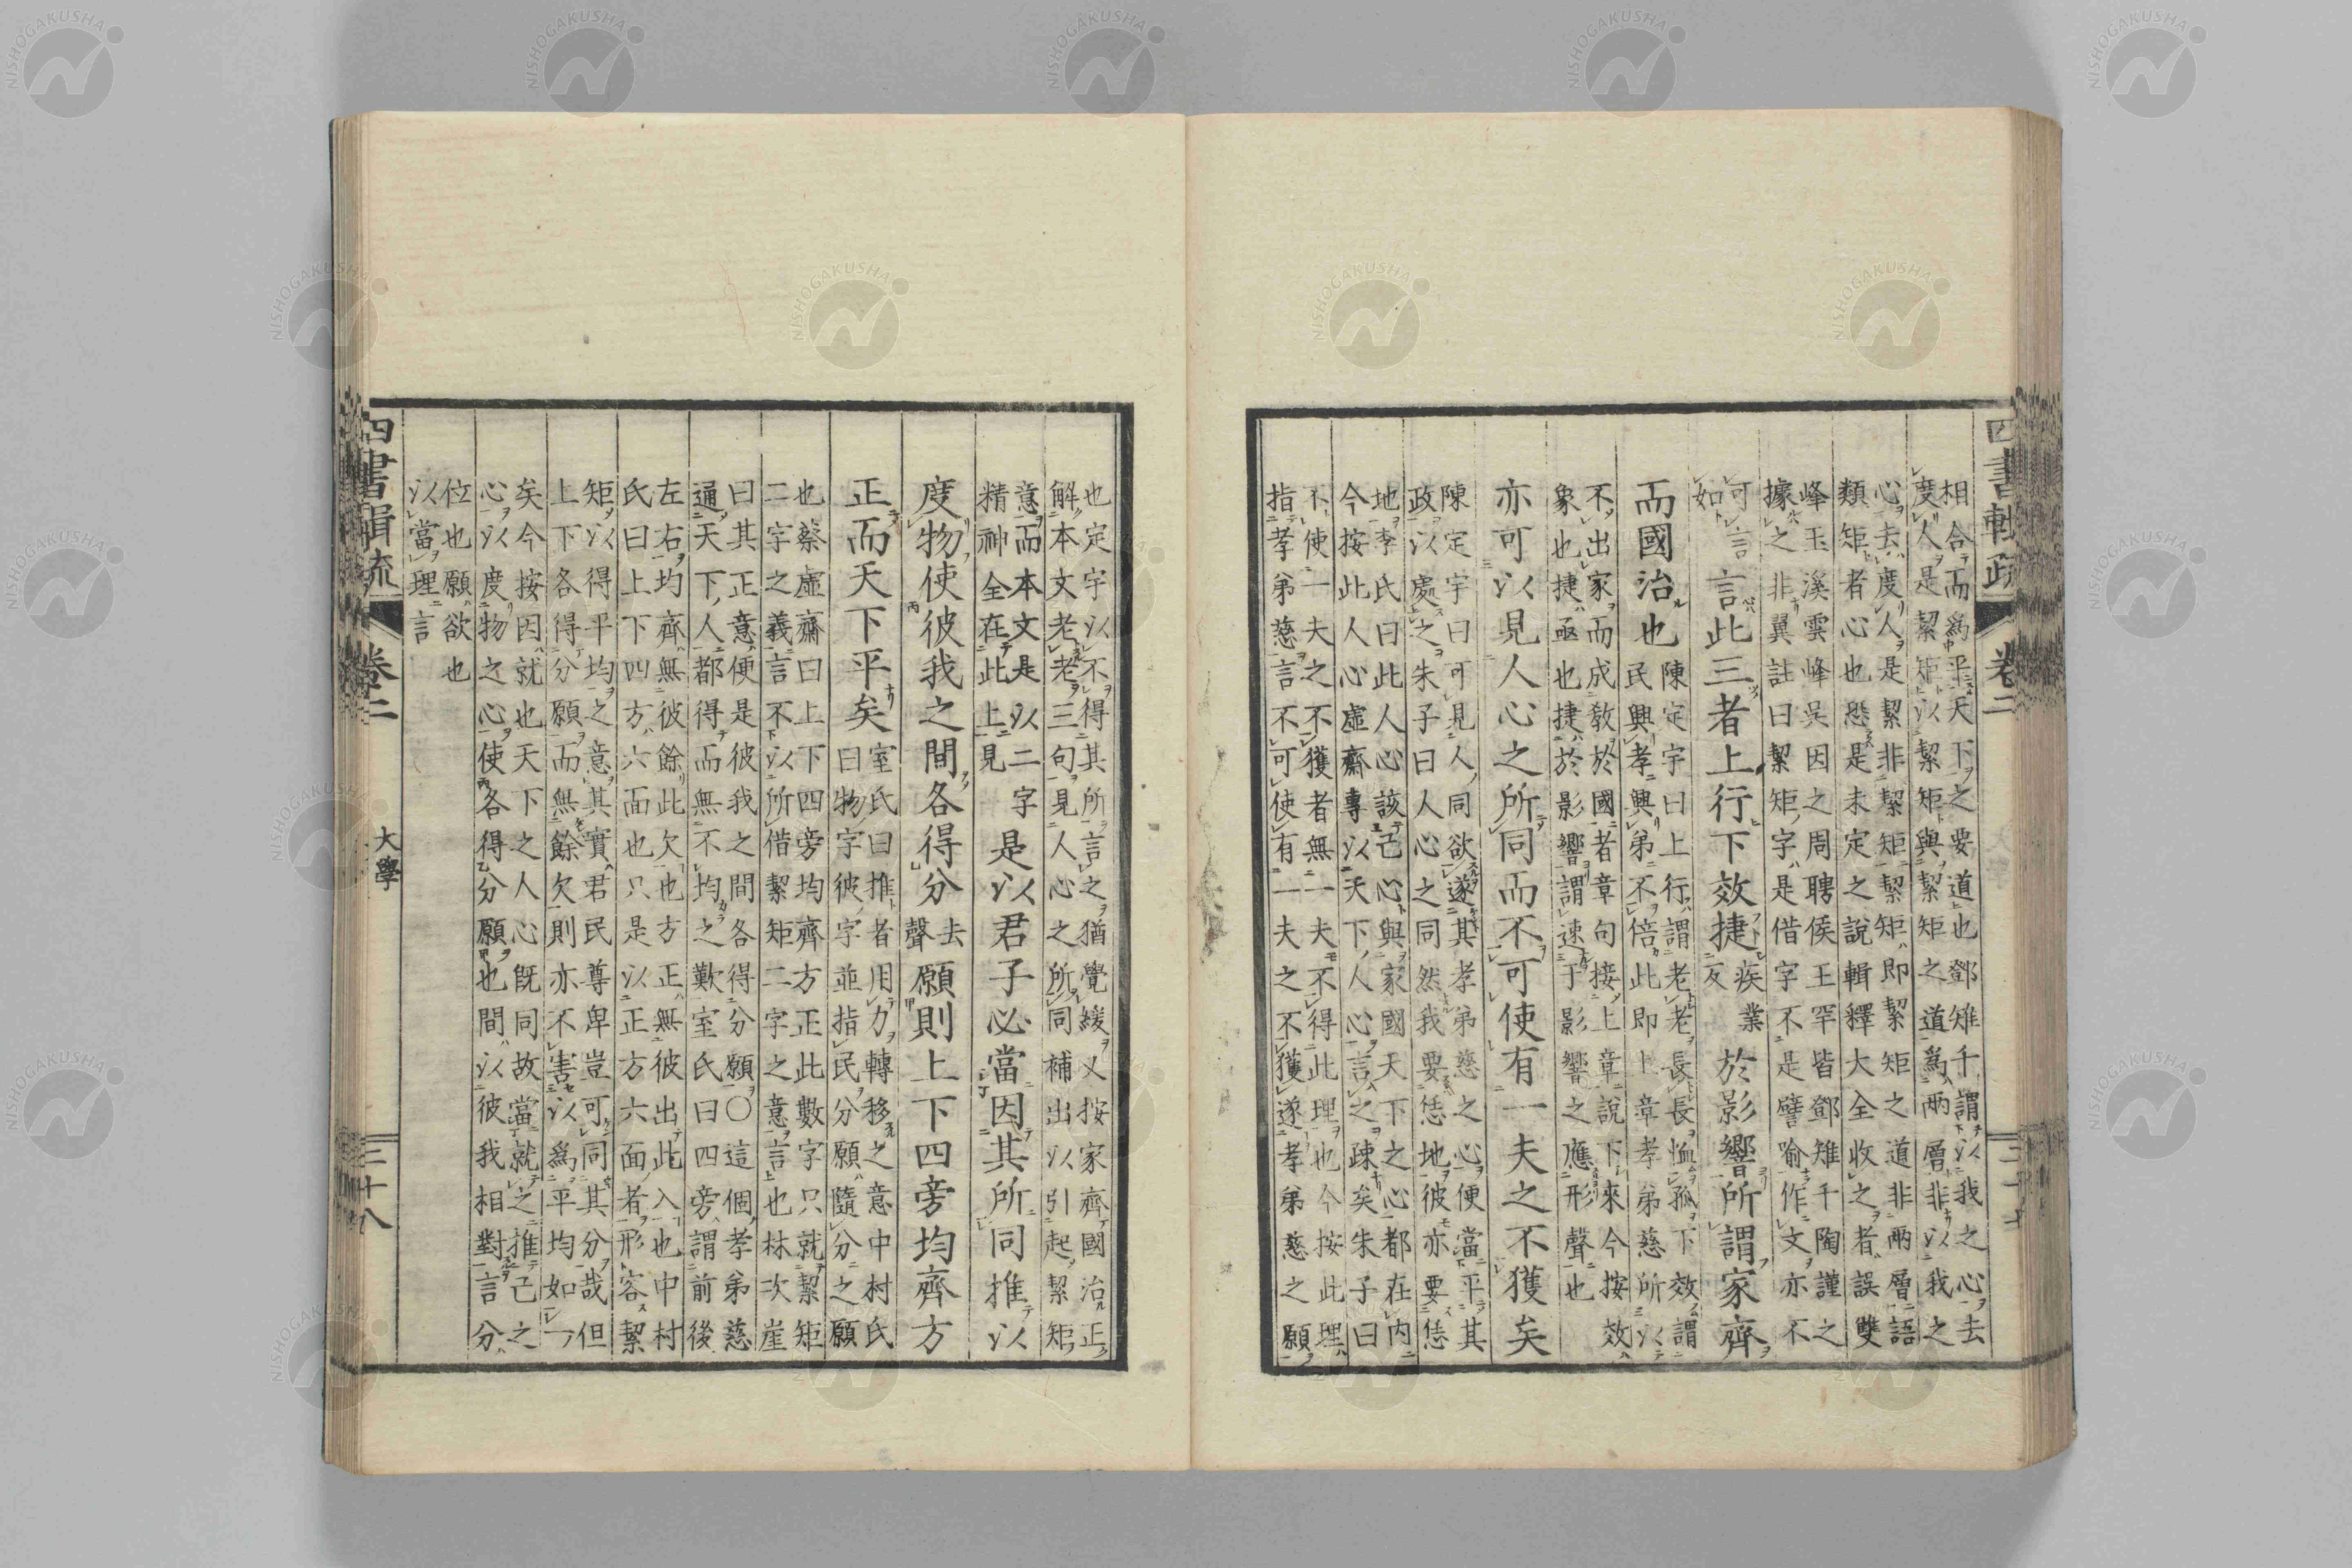 四書輯疏 卷二
相合而爲平天下之要道也鄧雉千謂以我之心去
度人是絜矩以絜矩與絜矩之道爲兩層非以我之
心去度人是絜非絜矩絜矩即絜矩之道非兩層語
類矩者心也恐是未定之說輯釋大全收之者誤雙
峰玉溪雲峰吳因之周聘侯王罕皆鄧雉千陶謹之
據之非翼註曰絜矩字是借字不是譬喻作文亦不
可言
如
言此三者上行下效捷
疾業
反
於影響所謂家齊
而國治也
陳定宇曰上行謂老老長長恤孤下效謂
民興孝興弟不倍此即上章孝弟慈所以
不出家而成教於國者章句接上章說下來今按效
象也捷亟也捷於影響謂速于影響之應形聲也
亦可以見人心之所同而不可使有一夫之不獲矣
陳定宇曰可見人同欲遂其孝弟慈之心便當平其
政以處之朱子曰人心之同然我要恁地彼亦要恁
地李氏曰此人心該己心與家國天下之心都在內
今按此人心虛齋專以天下人心言之疎矣朱子曰
不使一夫之不獲者無一夫不得此理也今按此理
指孝弟慈言不可使有一夫之不獲遂孝弟慈之願
也定宇以不得其所言之猶覺緩又按家齊國治正
解本文老老三句見人心之所同補出以引起絜矩
意而本文是以二字
精神全在此上見
是以君子必當因其所同推以
度物使彼我之間各得分
去
聲
願則上下四旁均齊方
正而天下平矣
室氏曰推者用力轉移之意中村氏
曰物字彼字並指民分願隨分之願
也蔡虛齋曰上下四旁均齊方正此數字只就絜矩
二字之義言不以所借絜矩二字之意言也林次崖
曰其正意便是彼我之間各得分願〇這個孝弟慈
通天下人都得而無不均之歎室氏曰四旁謂前後
左右均齊無彼餘此欠也方正無彼出此入也中村
氏曰上下四方六面也只是以正方六面者形容絜
矩以得平均之意其實君民尊卑豈可同其分哉但
上下各得分願而無餘欠則亦不害以爲平均如一
矣今按因就也天下之人心既同故當就之推己之
心以度物之心使各得分願也間以彼我相對言分
位也願欲也
以當理言
四書輯疏 卷二 大學 三十八